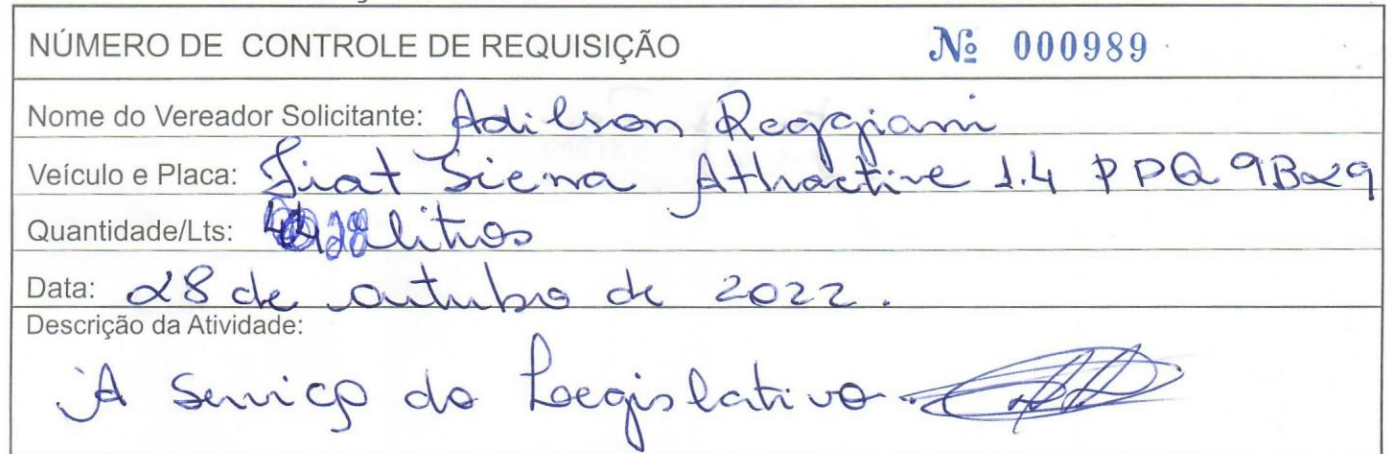 NÚMERO DE CONTROLE DE REQUISIÇÃO Nº 000989
Nome do Vereador Solicitante: Adilson Reggiani
Veículo e Placa: Fiat Siena Attractive 1.4 PPQ 9B29
Quantidade/Lts: litros
Data: 28 de outubro de 2022.
Descrição da Atividade:
A Serviço do Legislativo.